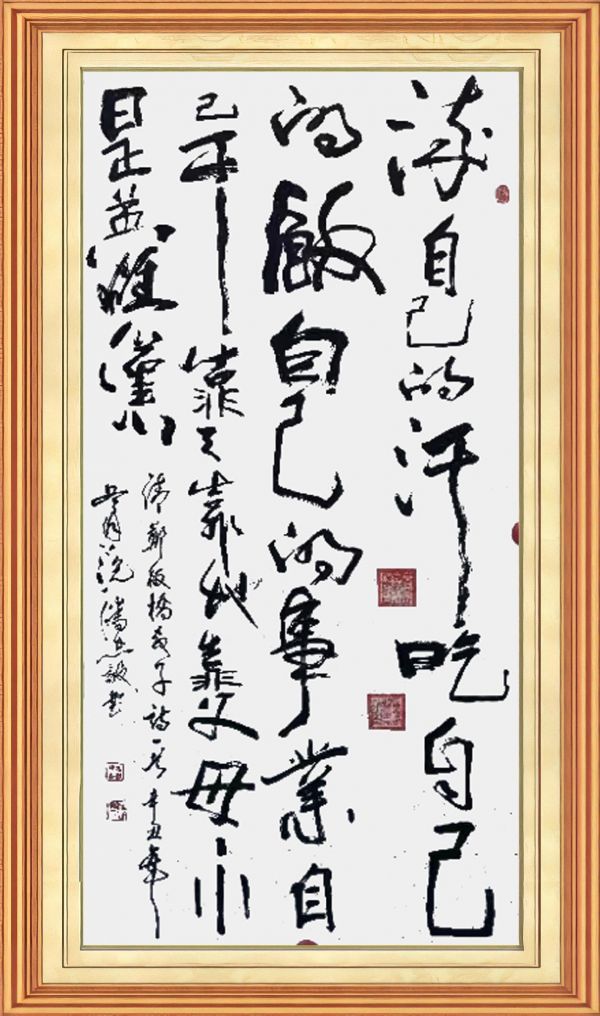 流自己的汗吃自己
的飯自己的事業自
己干靠天靠地靠父母不
是英雄漢
清鄭板橋教子詩一首辛丑年
月皖潘忠書